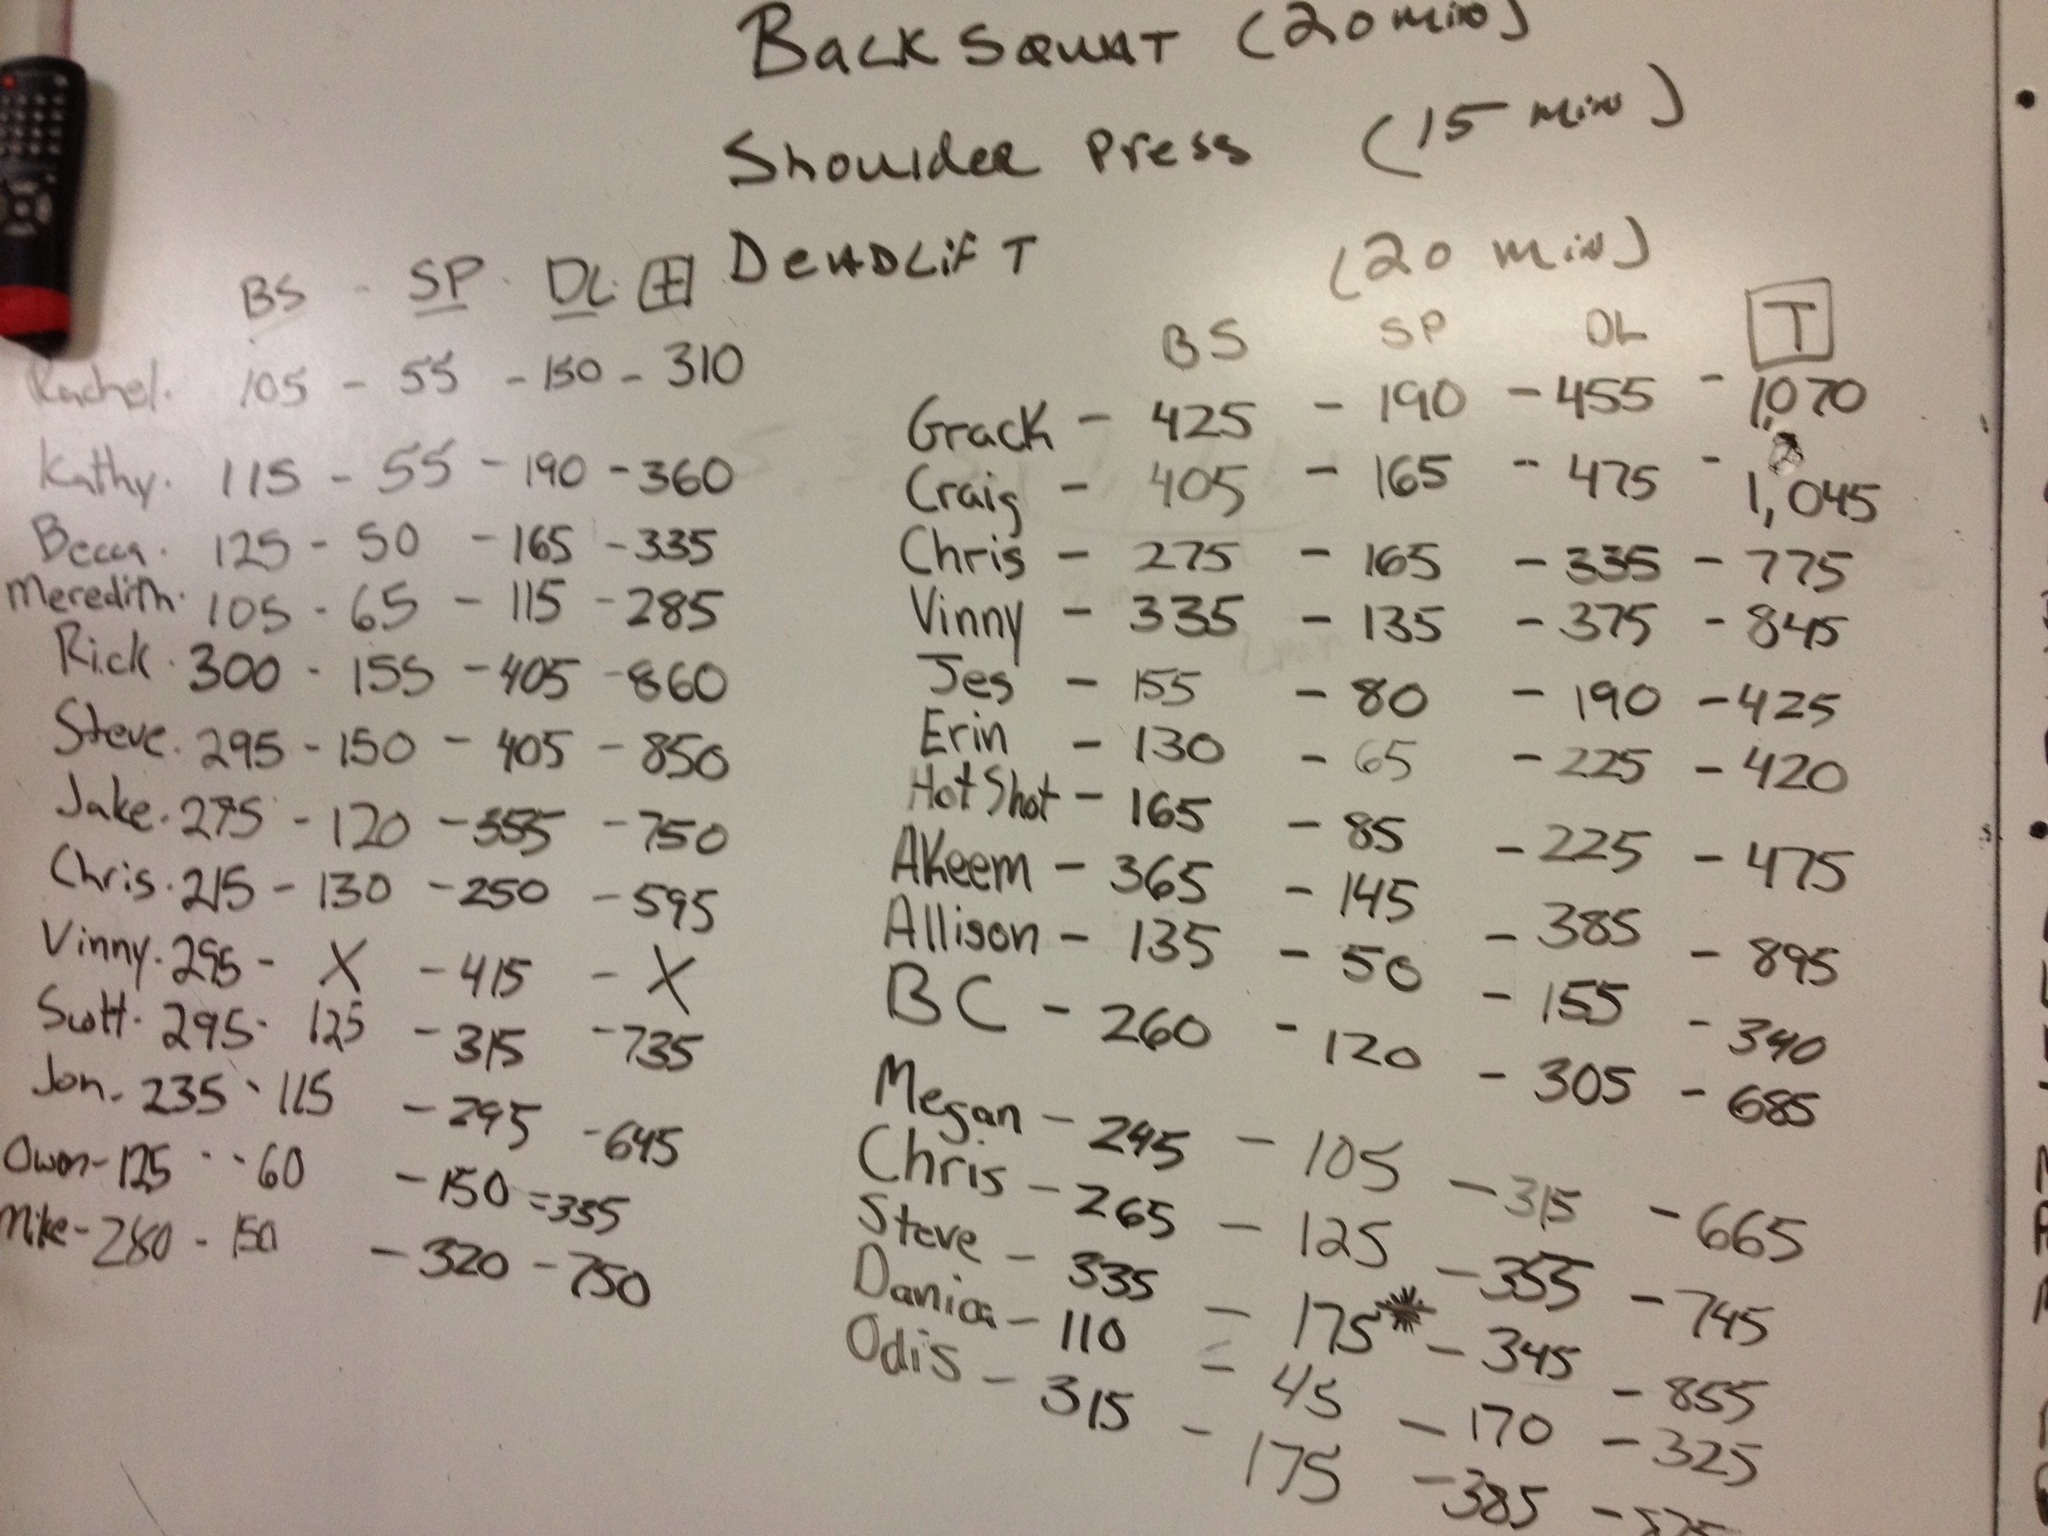 Back Squat (20 min)
Shoulder Press (15 min)
Deadlift (20 min)
BS - SP - DL
Rachel. 105 - 55 - 150 - 310
Kathy. 115 - 55 - 190 - 360
Becca. 125 - 50 - 165 - 335
Meredith. 105 - 65 - 115 - 285
Rick. 300 - 155 - 405 - 860
Steve. 295 - 150 - 405 - 850
Jake. 275 - 120 - 355 - 750
Chris. 215 - 130 - 250 - 595
Vinny. 295 - X - 415 - X
Scott. 295 - 125 - 315 - 735
Jon. 235 - 115 - 295 - 645
Owen - 125 - 60 - 150 = 335
Mike - 280 - 150 - 320 - 750
BS SP DL T
Grack - 425 - 190 - 455 - 1,070
Craig - 405 - 165 - 475 - 1,045
Chris - 275 - 165 - 335 - 775
Vinny - 335 - 135 - 375 - 845
Jes - 155 - 80 - 190 - 425
Erin - 130 - 65 - 225 - 420
Hot Shot - 165 - 85 - 225 - 475
Akeem - 365 - 145 - 385 - 895
Allison - 135 - 50 - 155 - 340
BC - 260 - 120 - 305 - 685
Megan - 245 - 105 - 315 - 665
Chris - 265 - 125 - 355 - 745
Steve - 335 - 175* - 345 - 855
Danica - 110 - 45 - 170 - 325
Odis - 315 - 175 - 385 -